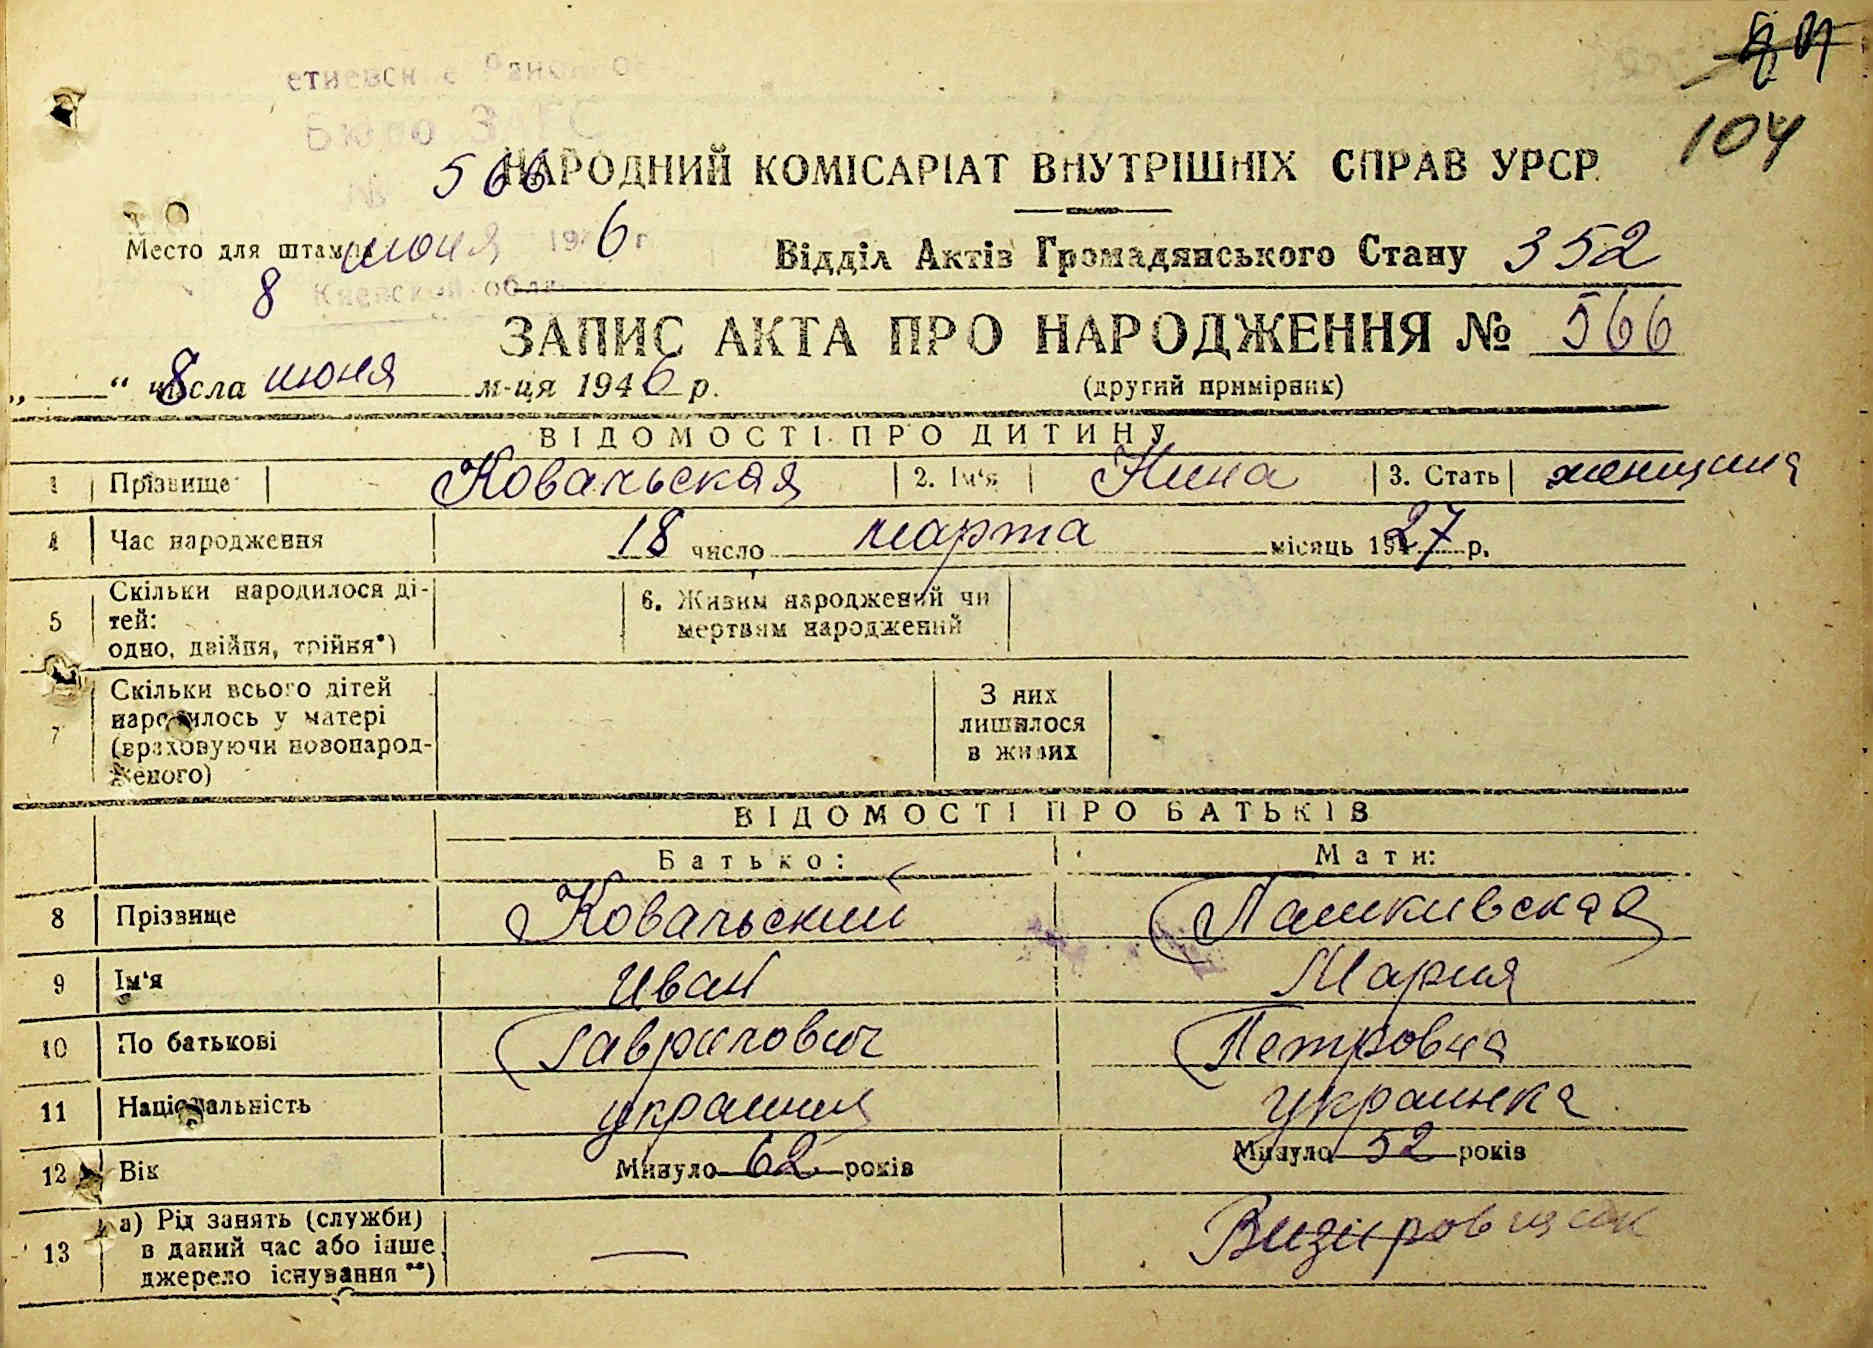 104
Бюро ЗАГС
№ 566
НАРОДНИЙ КОМІСАРІАТ ВНУТРІШНІХ СПРАВ УРСР
Место для штампа
8 июня 1946 г
Киевской обл
Відділ Актів Громадянського Стану 352
ЗАПИС АКТА ПРО НАРОДЖЕННЯ № 566
„ 8 “ числа июня м-ця 1946 р.
(другий примірник)
ВІДОМОСТІ ПРО ДИТИНУ
1 Прізвище Ковальская 2. Ім'я Нина 3. Стать женщина
4 Час народження 18 число марта місяць 1927 р.
5 Скільки народилося ді-
тей:
одно, двійня, трійня*)
6. Живим народжений чи
мертвим народжений
7 Скільки всього дітей
народилось у матері
(враховуючи новонарод-
женого)
З них
лишилося
в живих
ВІДОМОСТІ ПРО БАТЬКІВ
Батько: Мати:
8 Прізвище Ковальский Пашкивская
9 Ім'я Иван Мария
10 По батькові Гаврилович Петровна
11 Національність украинец украинка
12 Вік Минуло 62 років Минуло 52 років
13 а) Рід занять (служби)
в даний час або інше
джерело існування **)
—